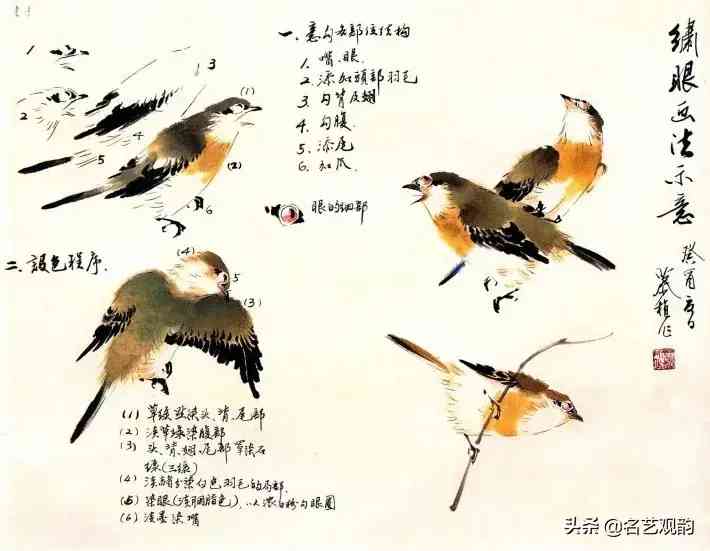 繡眼画法示意
癸酉
一、意勾各部位结构
1. 嘴、眼.
2. 添加頭部羽毛
3. 勾背及翅
4. 勾腹
5. 添尾
6. 加爪
眼的细部
1
2
3
4
5
6
(1)
(2)
二、設色程序.
(4)
5
(3)
(1) 草绿染头、背、尾部
(2) 淡草绿染腹部
(3) 头、背、翅、尾部罩染石
绿(三绿)
(4) 淡赭分染白色羽毛的局部.
(5) 染眼(淡胭脂色),以浓白粉勾眼圈
(6) 淡墨染嘴
头条 @名艺观韵